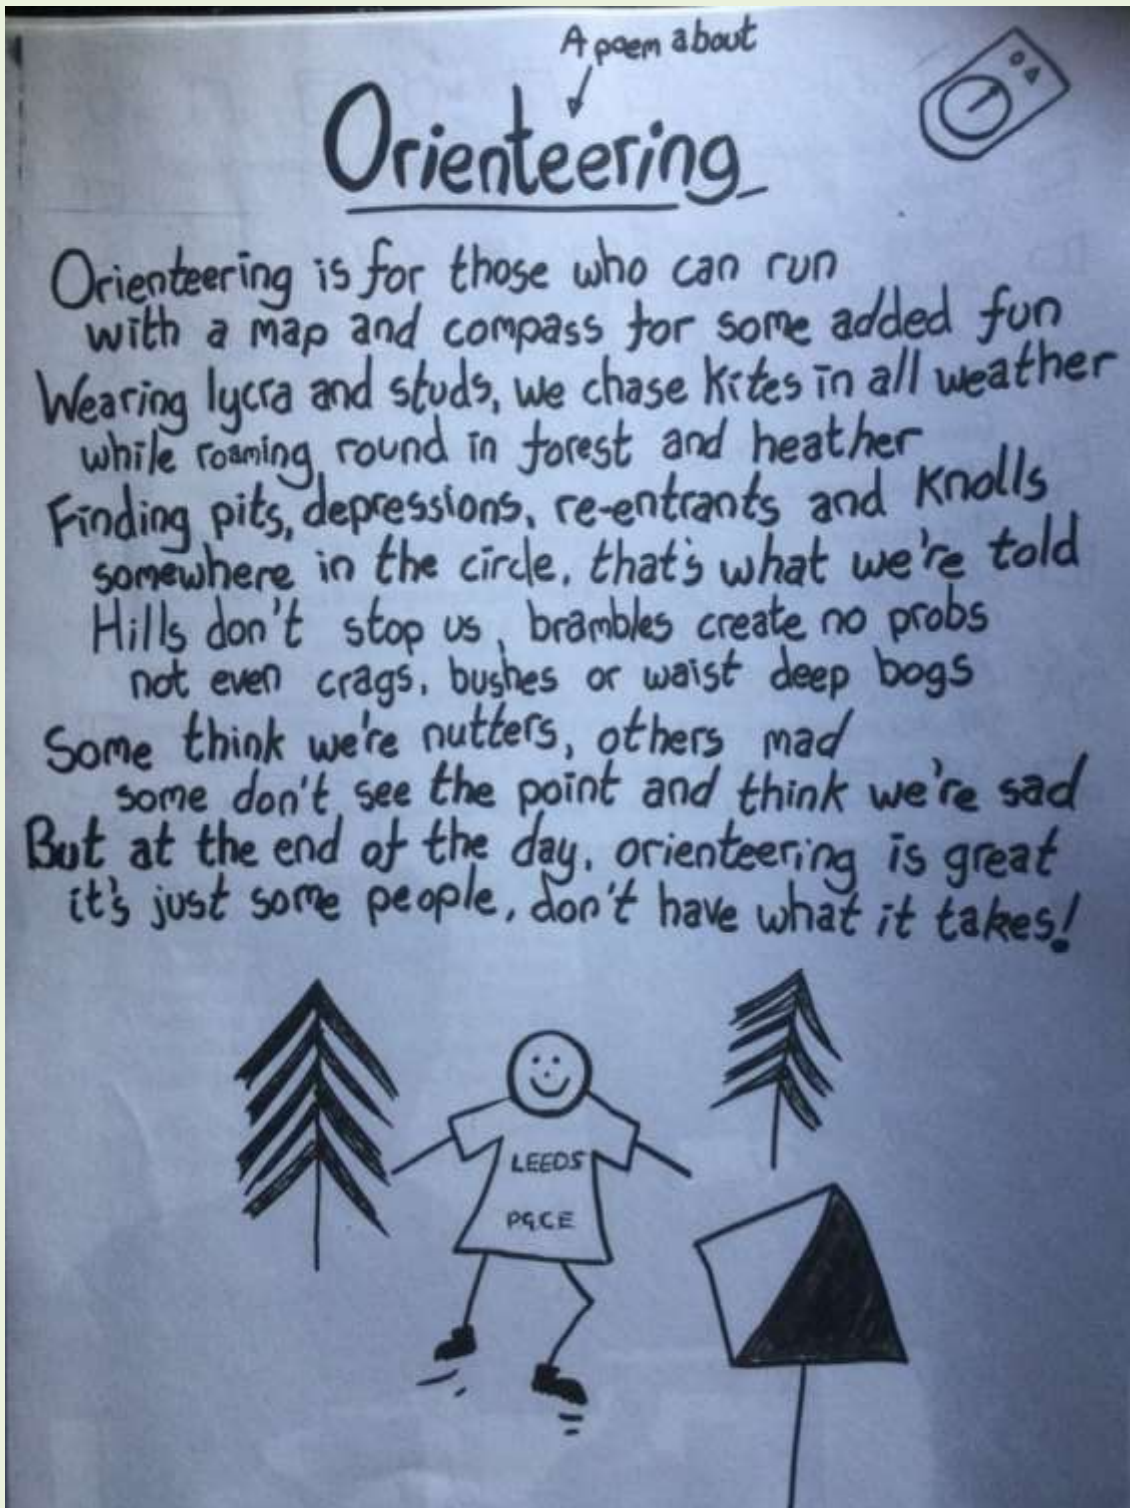 A poem about
Orienteering
Orienteering is for those who can run
with a map and compass for some added fun
Wearing lycra and studs, we chase kites in all weather
while roaming round in forest and heather
Finding pits, depressions, re-entrants and knolls
somewhere in the circle, that's what we're told
Hills don't stop us, brambles create no probs
not even crags, bushes or waist deep bogs
Some think we're nutters, others mad
some don't see the point and think we're sad
But at the end of the day, orienteering is great
it's just some people, don't have what it takes!
LEEDS
PGCE